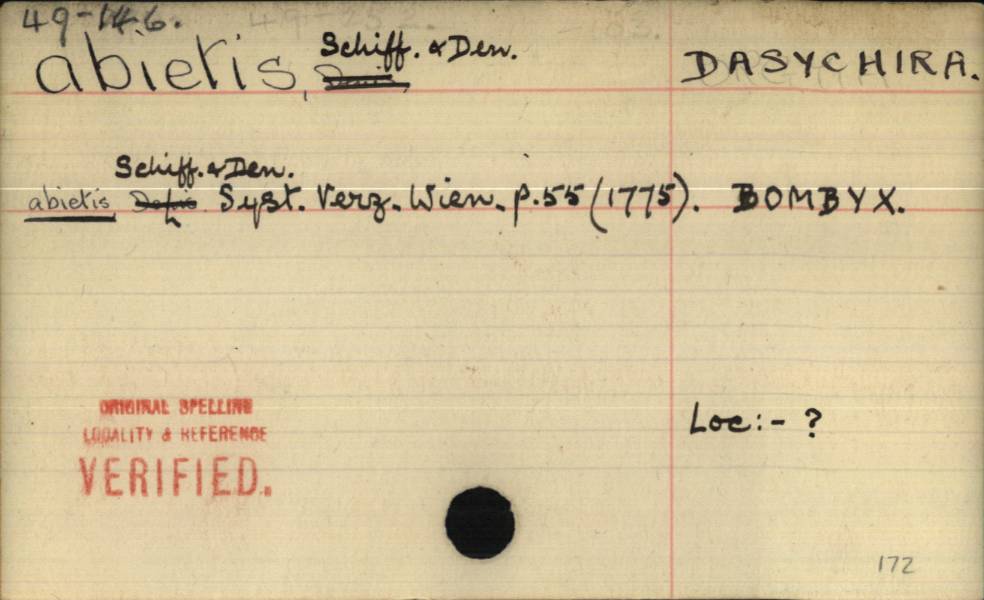 49-146.
abietis, Schiff. & Den. DASYCHIRA.
Schiff. & Den.
abietis Syst. Verz. Wien. p.55 (1775). BOMBYX.
ORIGINAL SPELLING
LOCALITY & REFERENCE
VERIFIED.
Loc:- ?
172